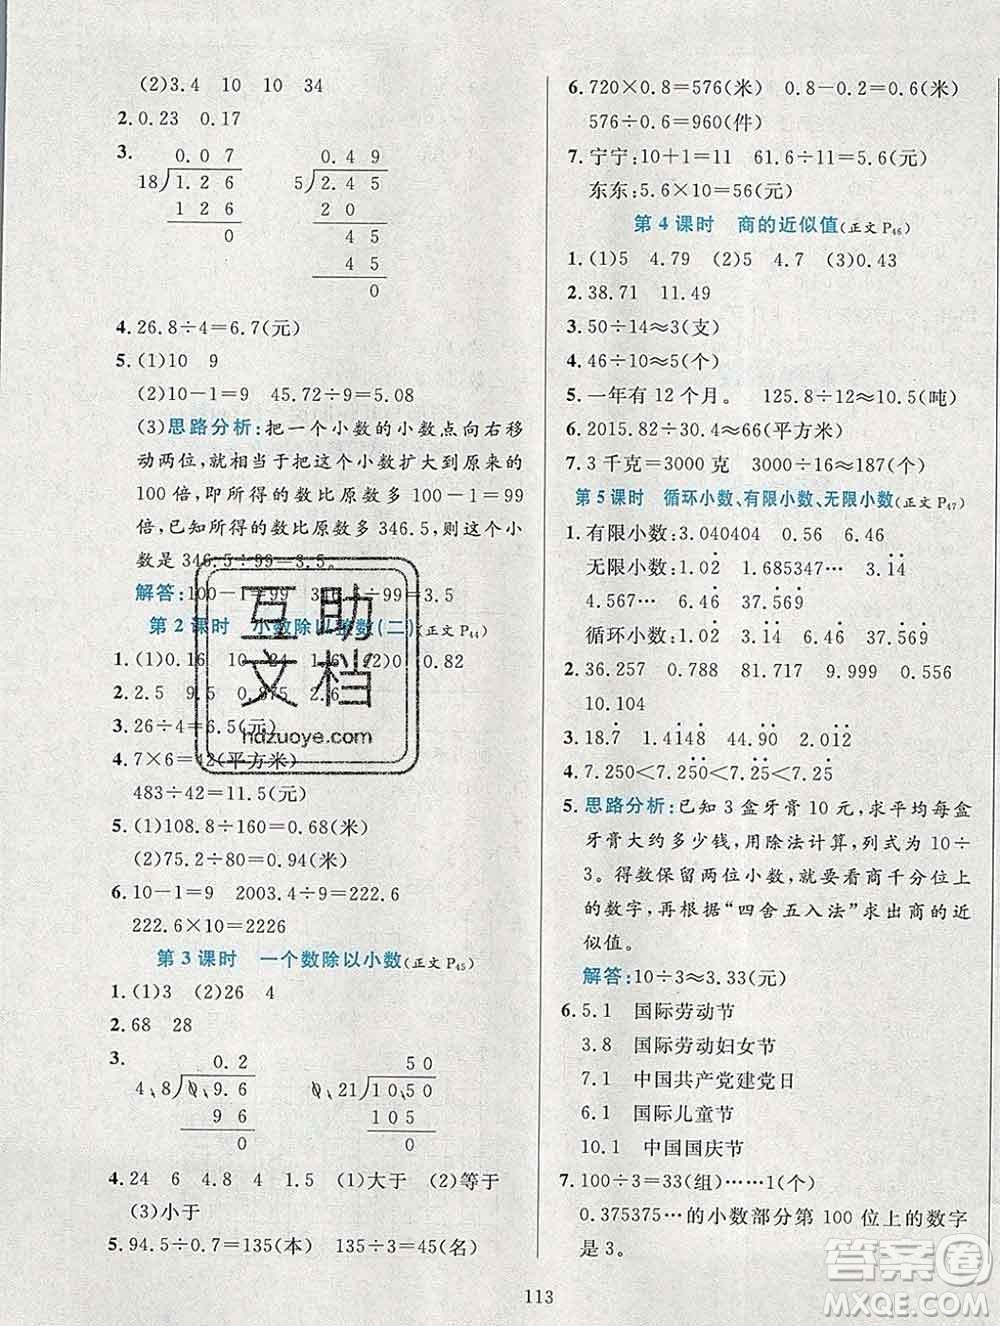 (2)3.4　10　10　34
2.0.23　0.17
3.
0.07
18)1.26
126
0
0.49
5)2.45
20
45
45
0
4.26.8÷4=6.7(元)
5.(1)10　9
(2)10-1=9　45.72÷9=5.08
(3)思路分析:把一个小数的小数点向右移
动两位,就相当于把这个小数扩大到原来的
100倍,即所得的数比原数多100-1=99
倍,已知所得的数比原数多346.5,则这个小
数是346.5÷99=3.5。
解答:100-1=99　346.5÷99=3.5
第2课时　小数除以整数(二)(正文P44)
1.(1)0.16　10　24　1.6　(2)0　0.82
2.2.5　9.5　0.975　2.6
3.26÷4=6.5(元)
4.7×6=42(平方米)
483÷42=11.5(千克)
5.(1)108.8÷160=0.68(米)
(2)75.2÷80=0.94(米)
6.10-1=9　2003.4÷9=222.6
222.6×10=2226
第3课时　一个数除以小数(正文P45)
1.(1)3　(2)26　4
2.68　28
3.
0.2
4.8)0.9.6
96
0
50
0.21)10.50
105
0
4.24　6　4.8　4　1.5　(1)大于　(2)等于
(3)小于
5.94.5÷0.7=135(本)　135÷3=45(名)
6.720×0.8=576(米)　0.8-0.2=0.6(米)
576÷0.6=960(件)
7.宁宁:10+1=11　61.6÷11=5.6(元)
东东:5.6×10=56(元)
第4课时　商的近似值(正文P46)
1.(1)5　4.79　(2)5　4.7　(3)0.43
2.38.71　11.49
3.50÷14≈3(支)
4.46÷10≈5(个)
5.一年有12个月。　125.8÷12≈10.5(吨)
6.2015.82÷30.4≈66(平方米)
7.3千克=3000克　3000÷16≈187(个)
第5课时　循环小数、有限小数、无限小数(正文P47)
1.有限小数:3.040404　0.56　6.46
无限小数:1.02̇　1.685347…　3.1̇4̇
4.567…　6.4̇6̇　37.5̇69̇
循环小数:1.02̇　3.1̇4̇　6.4̇6̇　37.5̇69̇
2.36.257　0.788　81.717　9.999　0.556
10.104
3.18.7̇　1.4̇78̇　44.9̇0̇　2.0̇12̇
4.7.250<7.2̇50̇<7.2̇5̇<7.25̇
5.思路分析:已知3盒牙膏10元,求平均每盒
牙膏大约多少钱,用除法计算,列式为10÷
3。得数保留两位小数,就要看商千分位上
的数字,再根据“四舍五入法”求出商的近
似值。
解答:10÷3≈3.33(元)
6.5.1　国际劳动节
3.8　国际劳动妇女节
7.1　中国共产党建党日
6.1　国际儿童节
10.1　中国国庆节
7.100÷3=33(组)……1(个)
0.375375…的小数部分第100位上的数字
是3。
113
互助
文档
hdzuoye.com
答案圈
MXQE.COM